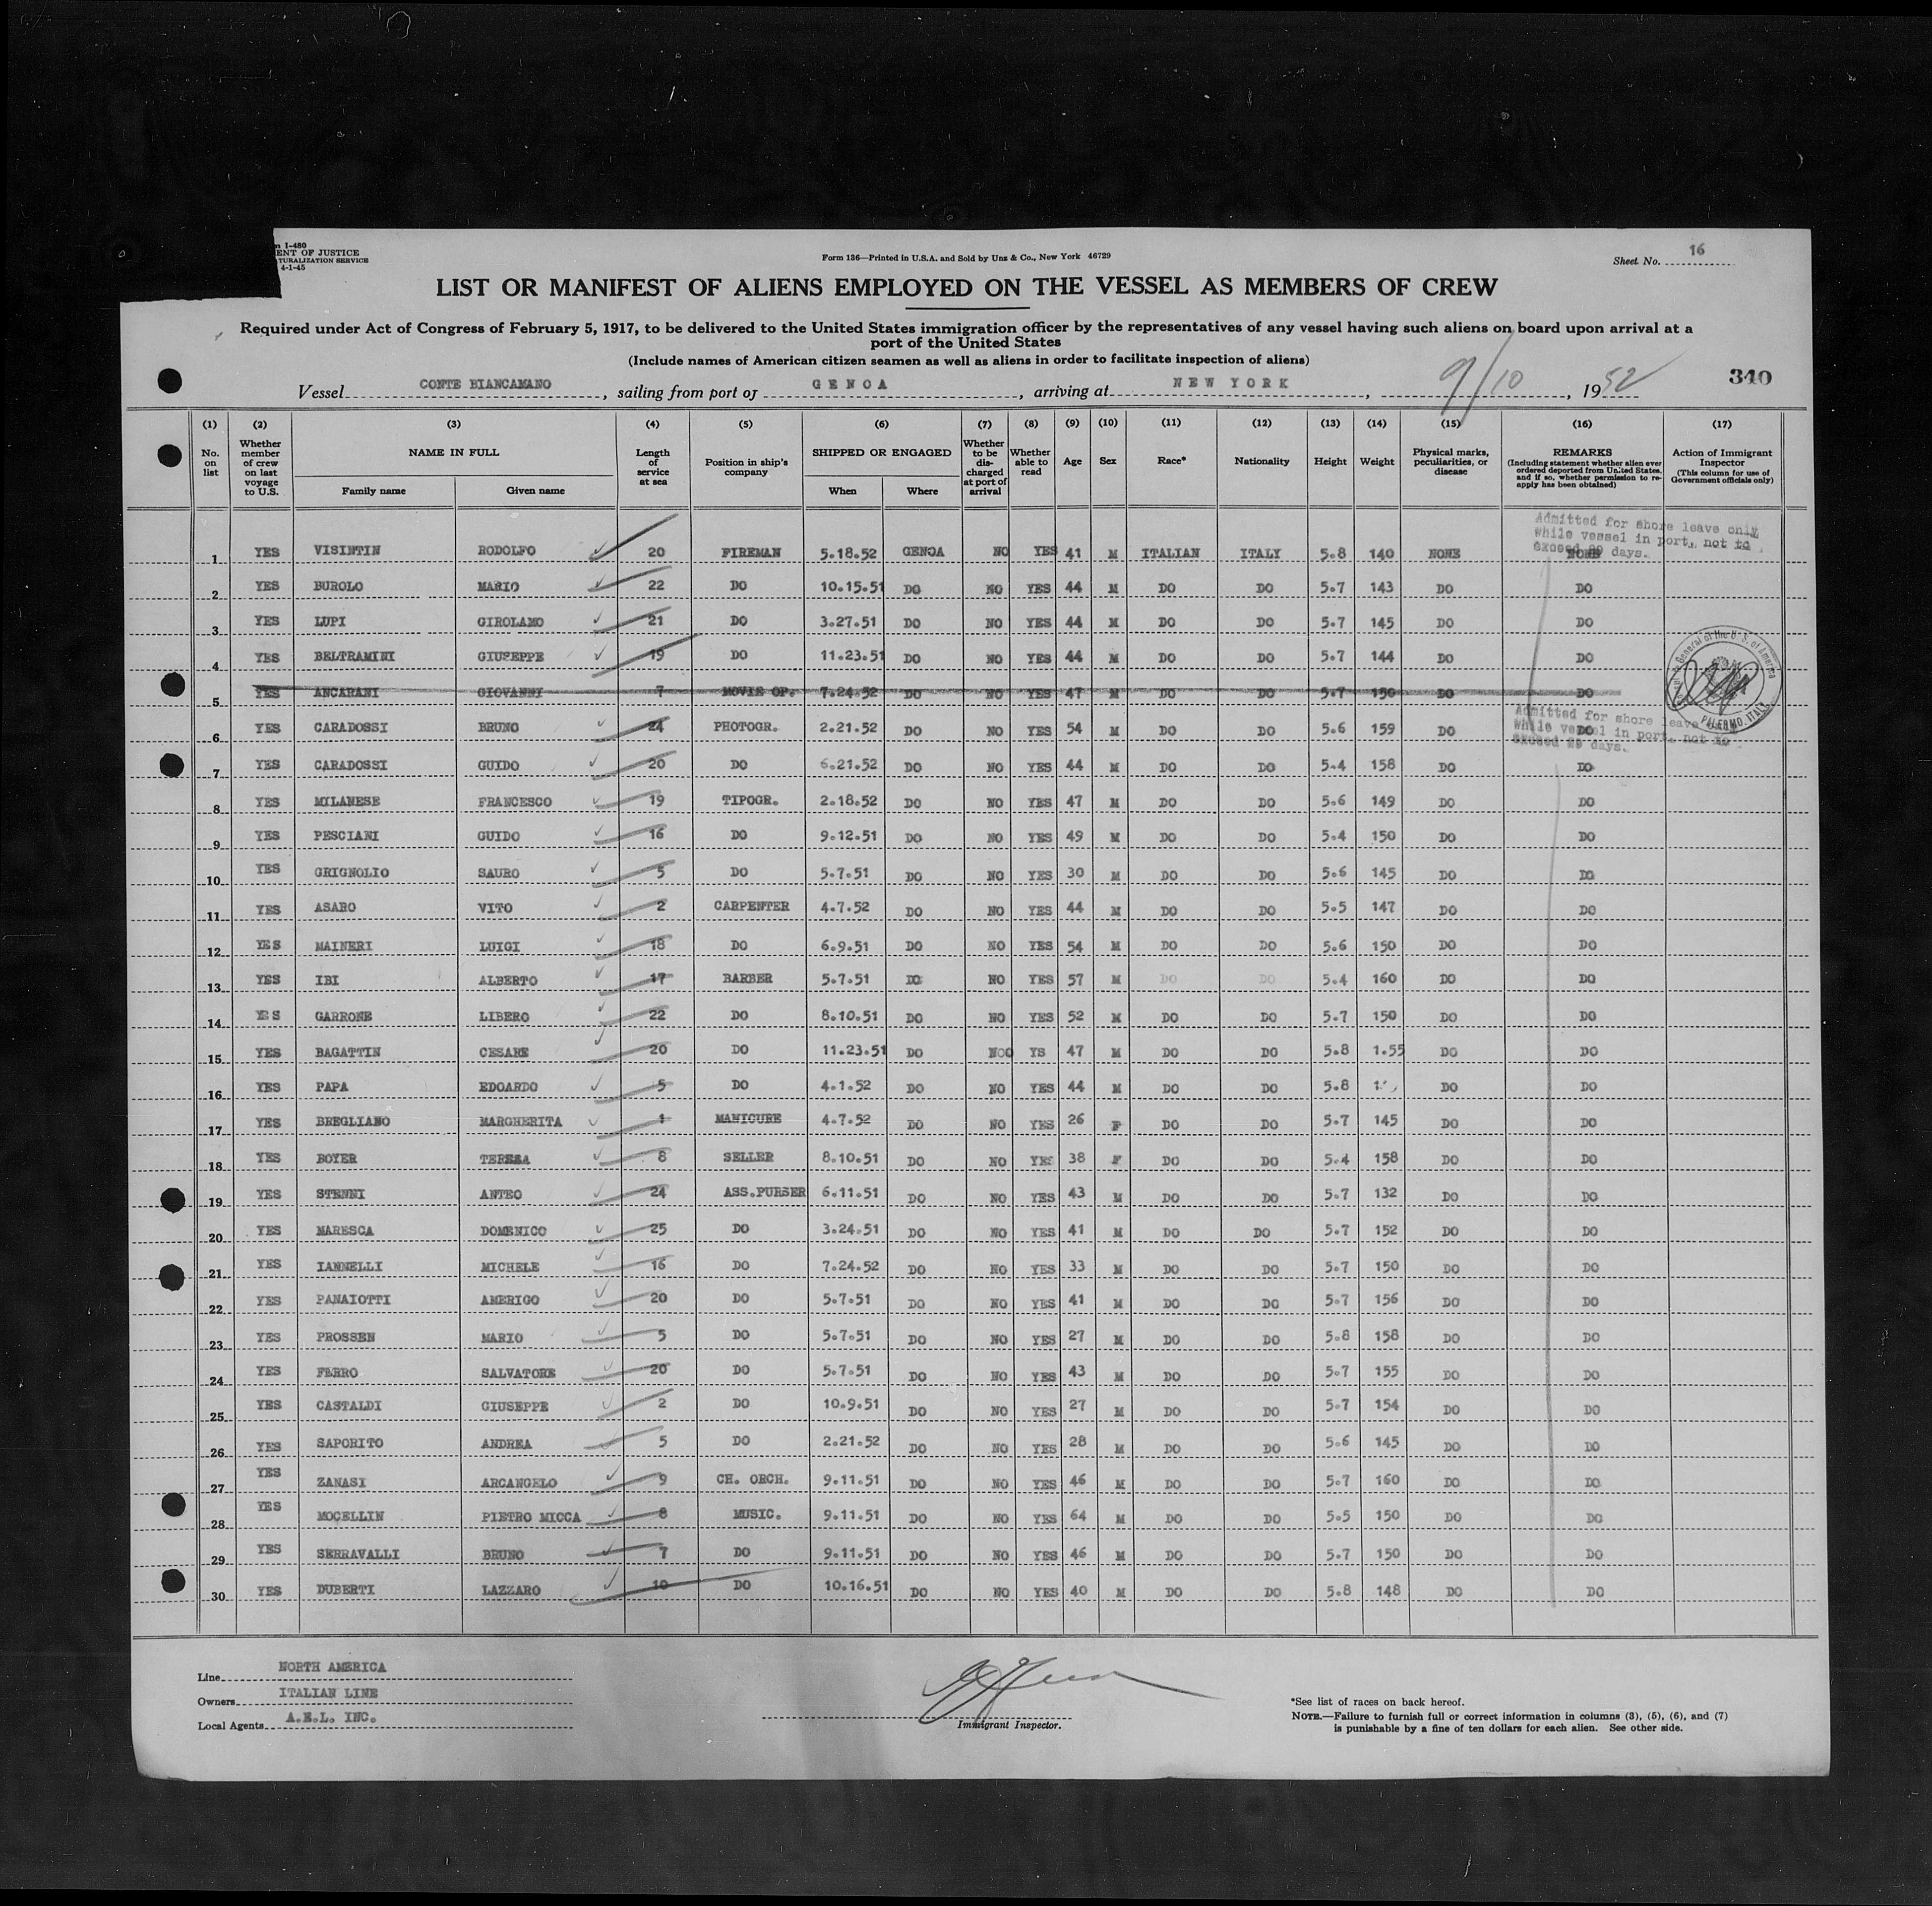 n 1-480
ENT OF JUSTICE
TURALIZATION SERVICE
4-1-45
Form 136—Printed in U.S.A. and Sold by Unz & Co., New York 46729
Sheet No. 16
LIST OR MANIFEST OF ALIENS EMPLOYED ON THE VESSEL AS MEMBERS OF CREW
Required under Act of Congress of February 5, 1917, to be delivered to the United States immigration officer by the representatives of any vessel having such aliens on board upon arrival at a
port of the United States
(Include names of American citizen seamen as well as aliens in order to facilitate inspection of aliens)
Vessel CONTE BIANCAMANO, sailing from port of GENOA, arriving at NEW YORK, 9/10, 1952 340
(1) (2) (3) (4) (5) (6) (7) (8) (9) (10) (11) (12) (13) (14) (15) (16) (17)
No. on list Whether member of crew on last voyage to U.S. NAME IN FULL Family name Given name Length of service at sea Position in ship's company SHIPPED OR ENGAGED When Where Whether to be discharged at port of arrival Whether able to read Age Sex Race* Nationality Height Weight Physical marks, peculiarities, or disease REMARKS (Including statement whether alien ever ordered deported from United States, and if so, whether permission to re-apply has been obtained) Action of Immigrant Inspector (This column for use of Government officials only)
Admitted for shore leave only
While vessel in port, not to
exceed 29 days.
1 YES VISINTIN RODOLFO 20 FIREMAN 5.18.52 GENOA NO YES 41 M ITALIAN ITALY 5.8 140 NONE NONE
2 YES BUROLO MARIO 22 DO 10.15.51 DO NO YES 44 M DO DO 5.7 143 DO DO
3 YES LUPI GIROLAMO 21 DO 3.27.51 DO NO YES 44 M DO DO 5.7 145 DO DO
4 YES BELTRAMINI GIUSEPPE 19 DO 11.23.51 DO NO YES 44 M DO DO 5.7 144 DO DO
5 YES ANCARANI GIOVANNI 7 MOVIE OP. 7.24.52 DO NO YES 47 M DO DO 5.7 150 DO DO
General of the U.S. of America
PALERMO, ITALY
Admitted for shore leave
While vessel in port, not to
exceed 29 days.
6 YES CARADOSSI BRUNO 24 PHOTOGR. 2.21.52 DO NO YES 54 M DO DO 5.6 159 DO DO
7 YES CARADOSSI GUIDO 20 DO 6.21.52 DO NO YES 44 M DO DO 5.4 158 DO DO
8 YES MILANESE FRANCESCO 19 TIPOGR. 2.18.52 DO NO YES 47 M DO DO 5.6 149 DO DO
9 YES PESCIANI GUIDO 16 DO 9.12.51 DO NO YES 49 M DO DO 5.4 150 DO DO
10 YES GRIGNOLIO SAURO 5 DO 5.7.51 DO NO YES 30 M DO DO 5.6 145 DO DO
11 YES ASARO VITO 2 CARPENTER 4.7.52 DO NO YES 44 M DO DO 5.5 147 DO DO
12 YES MAINERI LUIGI 18 DO 6.9.51 DO NO YES 54 M DO DO 5.6 150 DO DO
13 YES IBI ALBERTO 17 BARBER 5.7.51 DO NO YES 57 M DO DO 5.4 160 DO DO
14 YES GARRONE LIBERO 22 DO 8.10.51 DO NO YES 52 M DO DO 5.7 150 DO DO
15 YES BAGATTIN CESARE 20 DO 11.23.51 DO NOO YS 47 M DO DO 5.8 1.55 DO DO
16 YES PAPA EDOARDO 5 DO 4.1.52 DO NO YES 44 M DO DO 5.8 DO DO
17 YES BREGLIANO MARGHERITA 1 MANICURE 4.7.52 DO NO YES 26 F DO DO 5.7 145 DO DO
18 YES BOYER TERESA 8 SELLER 8.10.51 DO NO YES 38 F DO DO 5.4 158 DO DO
19 YES STENNI ANTEO 24 ASS.PURSER 6.11.51 DO NO YES 43 M DO DO 5.7 132 DO DO
20 YES MARESCA DOMENICO 25 DO 3.24.51 DO NO YES 41 M DO DO 5.7 152 DO DO
21 YES IANNELLI MICHELE 16 DO 7.24.52 DO NO YES 33 M DO DO 5.7 150 DO DO
22 YES PANAIOTTI AMERIGO 20 DO 5.7.51 DO NO YES 41 M DO DO 5.7 156 DO DO
23 YES PROSSEN MARIO 5 DO 5.7.51 DO NO YES 27 M DO DO 5.8 158 DO DO
24 YES FERRO SALVATORE 20 DO 5.7.51 DO NO YES 43 M DO DO 5.7 155 DO DO
25 YES CASTALDI GIUSEPPE 2 DO 10.9.51 DO NO YES 27 M DO DO 5.7 154 DO DO
26 YES SAPORITO ANDREA 5 DO 2.21.52 DO NO YES 28 M DO DO 5.6 145 DO DO
27 YES ZANASI ARCANGELO 9 CH. ORCH. 9.11.51 DO NO YES 46 M DO DO 5.7 160 DO DO
28 YES MOCELLIN PIETRO MICCA 8 MUSIC. 9.11.51 DO NO YES 64 M DO DO 5.5 150 DO DO
29 YES SERRAVALLI BRUNO 7 DO 9.11.51 DO NO YES 46 M DO DO 5.7 150 DO DO
30 YES DUBERTI LAZZARO 10 DO 10.16.51 DO NO YES 40 M DO DO 5.8 148 DO DO
Line NORTH AMERICA
Owners ITALIAN LINE
Local Agents A.E.L. INC.
Immigrant Inspector.
*See list of races on back hereof.
NOTE.—Failure to furnish full or correct information in columns (3), (5), (6), and (7)
is punishable by a fine of ten dollars for each alien. See other side.